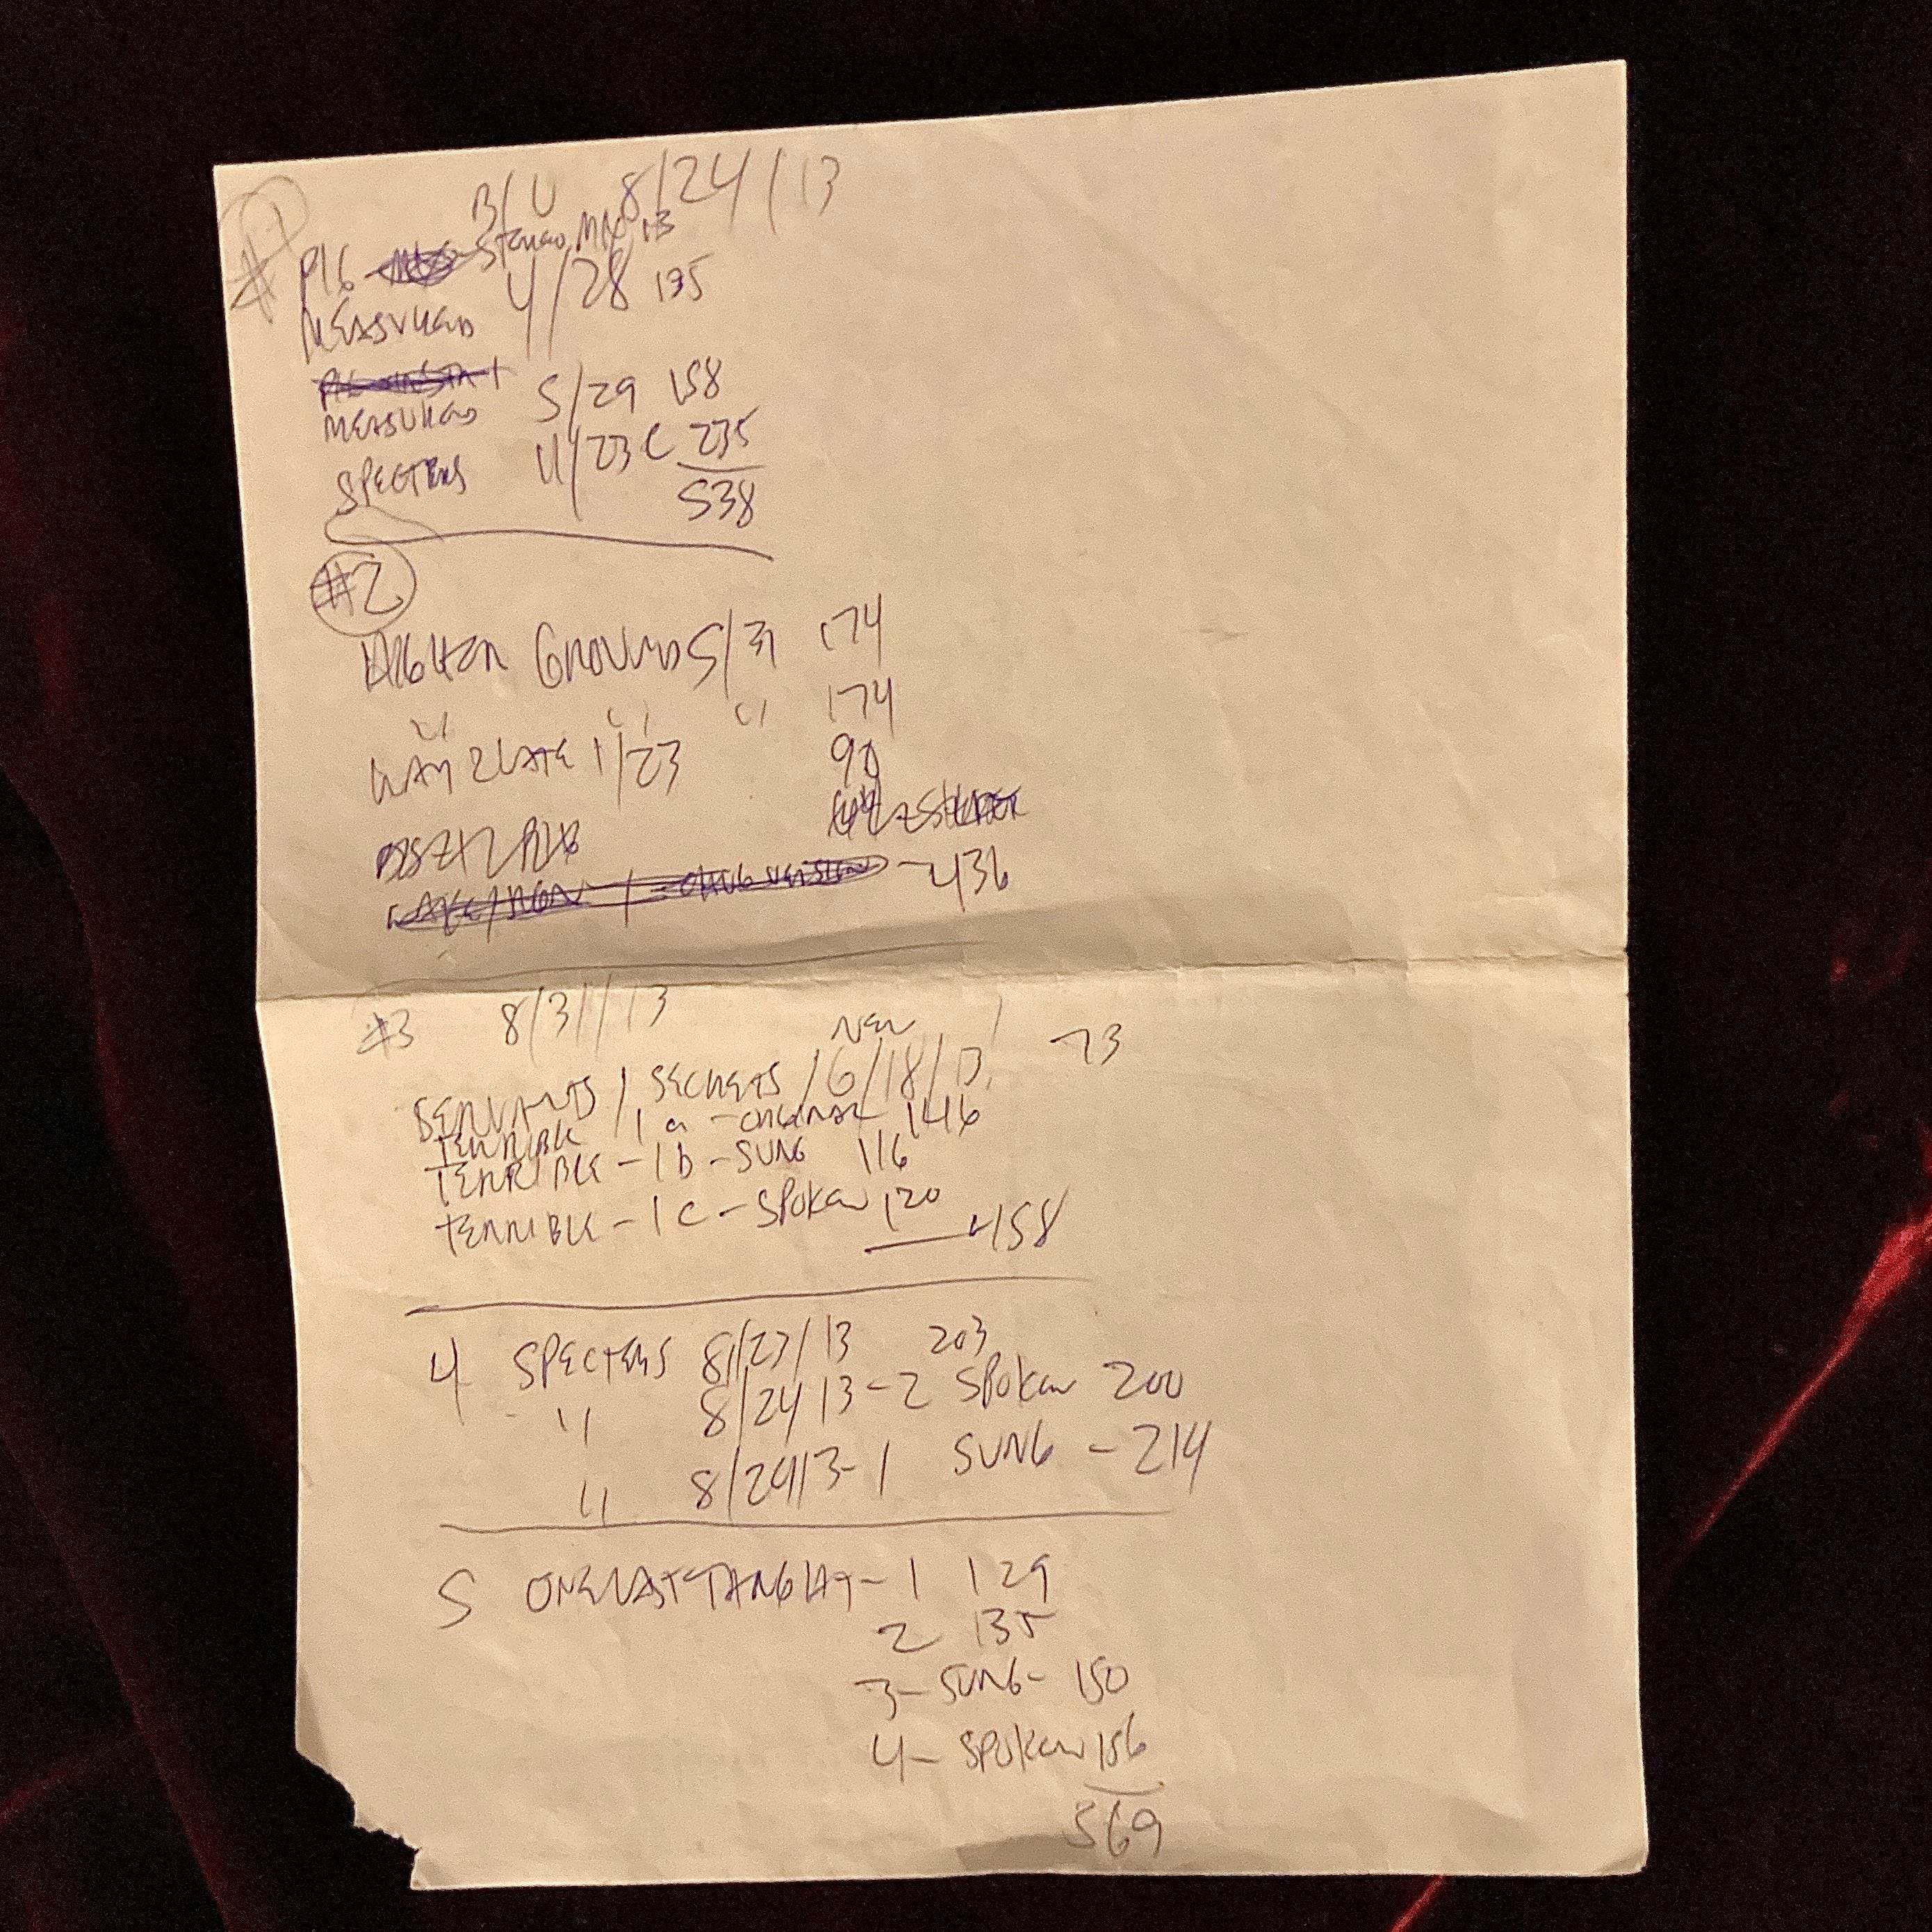 #1 B/U 8/24/13
PIG STEREO MIX 13
MEASURED 4/28 135
MEASURED 5/29 158
SPECTERS 4/23 C 235
538
#2
HIGHER GROUND 5/31 174
" " " 174
WAY 2 LATE 1/23 90
436
#3 8/31/13
NEW
SERVANTS / SECRETS / 6/18/13 73
TERRIBLE / 1a - ORIGINAL 146
TERRIBLE - 1b - SUNG 116
TERRIBLE - 1C - SPOKEN 120
458
4 SPECTERS 8/23/13 203
" 8/24 13 - 2 SPOKEN 200
" 8/24 13 - 1 SUNG - 214
5 ONE LAST - 1 129
2 135
3 - SUNG - 150
4 - SPOKEN 156
569